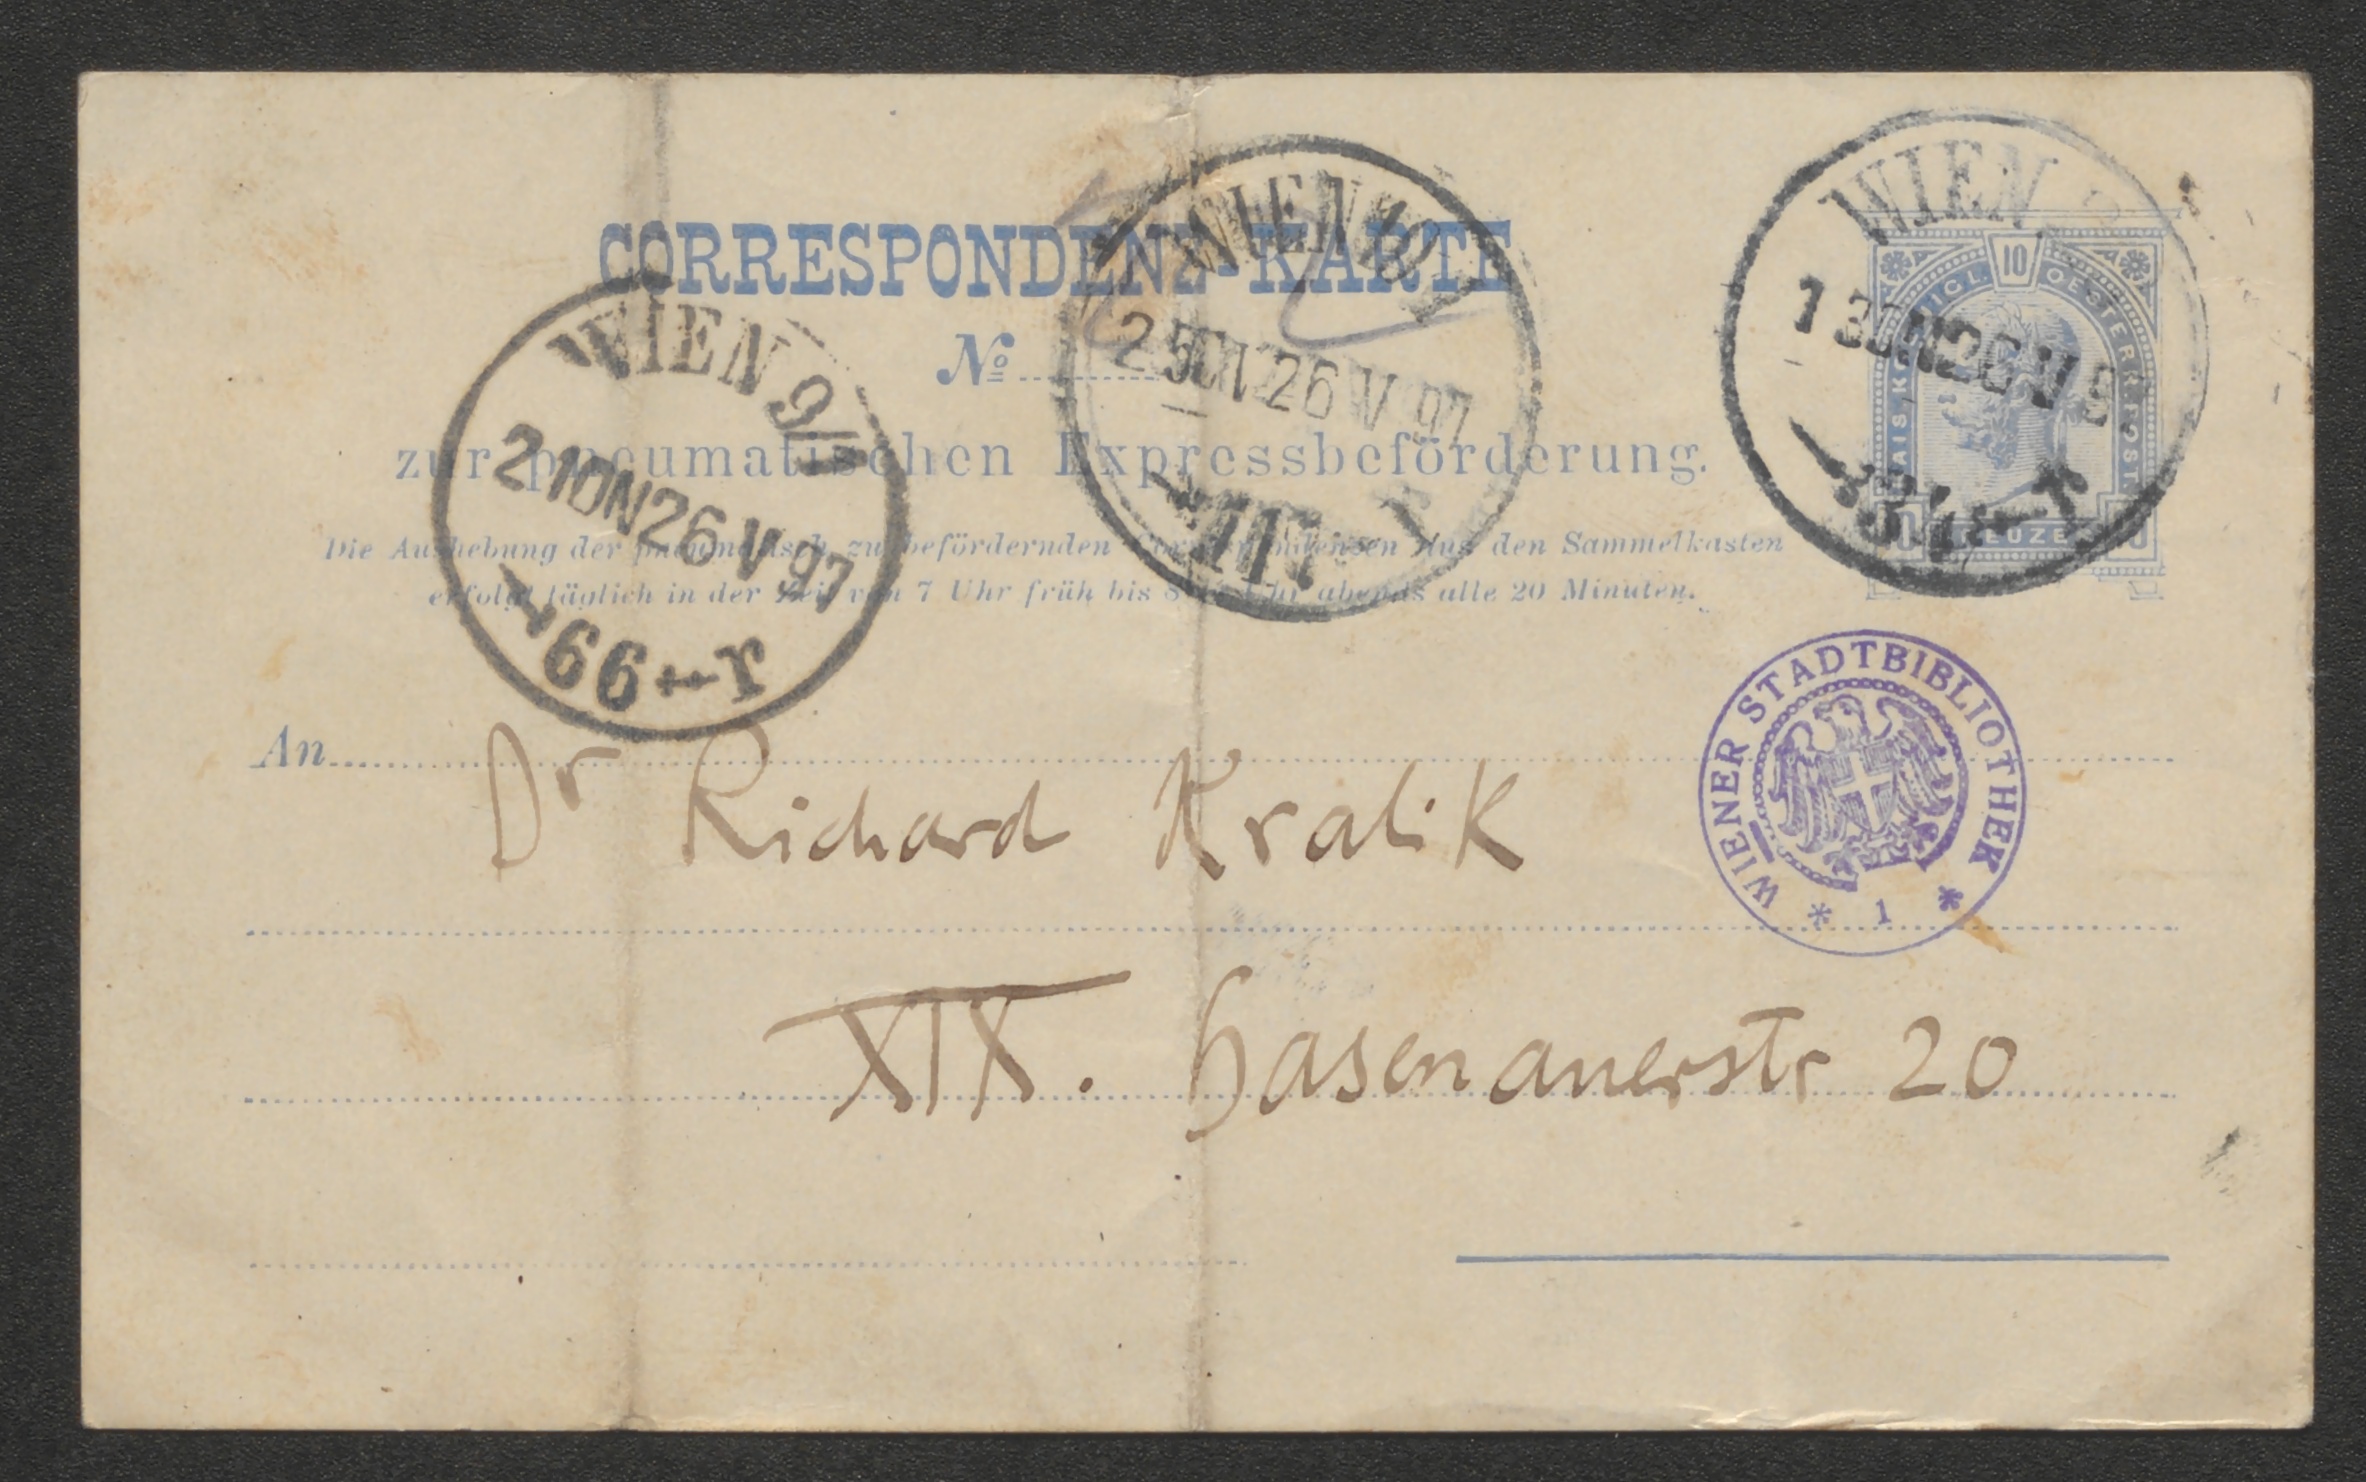 CORRESPONDENZ-KARTE
№
zur pneumatischen Expressbeförderung.
Die Aushebung der pneumatisch zu befördernden Correspondenzen aus den Sammelkasten
erfolgt täglich in der Zeit von 7 Uhr früh bis Uhr abends alle 20 Minuten.
WIEN 9/1
2 10N 26 V 97
66
WIEN
26 V 97
WIEN
KAIS. KÖNIGL. OESTERR. POST
10
KREUZER
WIENER STADTBIBLIOTHEK
* 1 *
An Dr Richard Kralik
XIX. Hasenauerstr 20